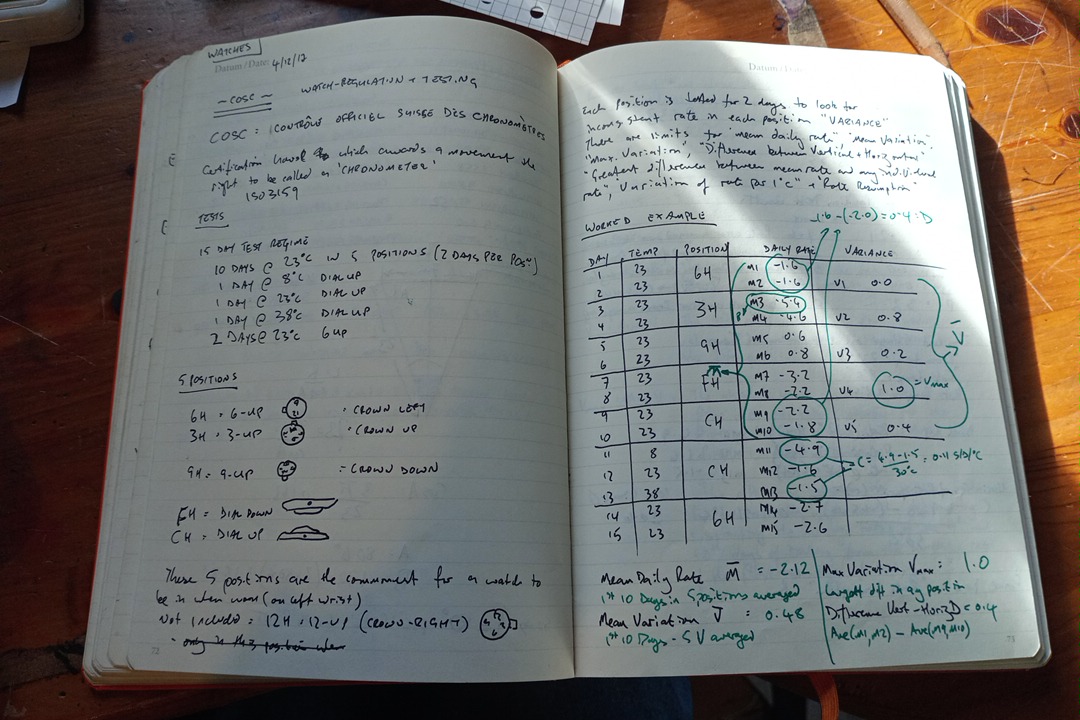 WATCHES
Datum / Date: 4/12/17
~ COSC ~ WATCH-REGULATION + TESTING
COSC = CONTRÔLE OFFICIEL SUISSE DES CHRONOMÈTRES
Certification which awards a movement the
right to be called a 'CHRONOMETER'
ISO3159
TESTS
15 DAY TEST REGIME
10 DAYS @ 23°C IN 5 POSITIONS (2 DAYS PER POSN)
1 DAY @ 8°C DIAL UP
1 DAY @ 23°C DIAL UP
1 DAY @ 38°C DIAL UP
2 DAYS @ 23°C 6 UP
5 POSITIONS
6H = 6-UP = CROWN LEFT
3H = 3-UP = CROWN UP
9H = 9-UP = CROWN DOWN
FH = DIAL DOWN
CH = DIAL UP
These 5 positions are the for a watch to
be in when worn (on left wrist)
Not included = 12H = 12-UP (CROWN-RIGHT)
- only in this position when
72
Datum / Date:
Each position is tested for 2 days to look for
inconsistent rate in each position "VARIANCE"
There are limits for "mean daily rate", "Mean Variation",
"Max. Variation", "Difference between Vertical + Horizontal"
"Greatest difference between mean rate and any individual
rate", Variation of rate per 1°C" + "Rate Resumption"
WORKED EXAMPLE
-1.6 -(-2.0) = 0.4 = D
DAY TEMP POSITION DAILY RATE VARIANCE
1 23 6H M1 -1.6
2 23 M2 -1.6 V1 0.0
3 23 3H M3 -5.4
4 23 M4 -4.6 V2 0.8
5 23 9H M5 0.6
6 23 M6 0.8 V3 0.2
7 23 FH M7 -3.2
8 23 M8 -2.2 V4 1.0 = Vmax
9 23 CH M9 -2.2
10 23 M10 -1.8 V5 0.4
V̄
11 8 M11 -4.9
12 23 CH M12 -1.6
13 38 M13 -1.5
C = 4.9-1.5/30°C = 0.11 S/D/°C
14 23 6H M14 -2.7
15 23 M15 -2.6
Mean Daily Rate M̄ = -2.12
1st 10 Days in 5 positions averaged
Mean Variation V̄ = 0.48
1st 10 Days - 5 V averaged
Max Variation Vmax = 1.0
Largest diff in any position
Difference Vert-Horiz D = 0.4
Ave(M1,M2) - Ave(M9,M10)
73